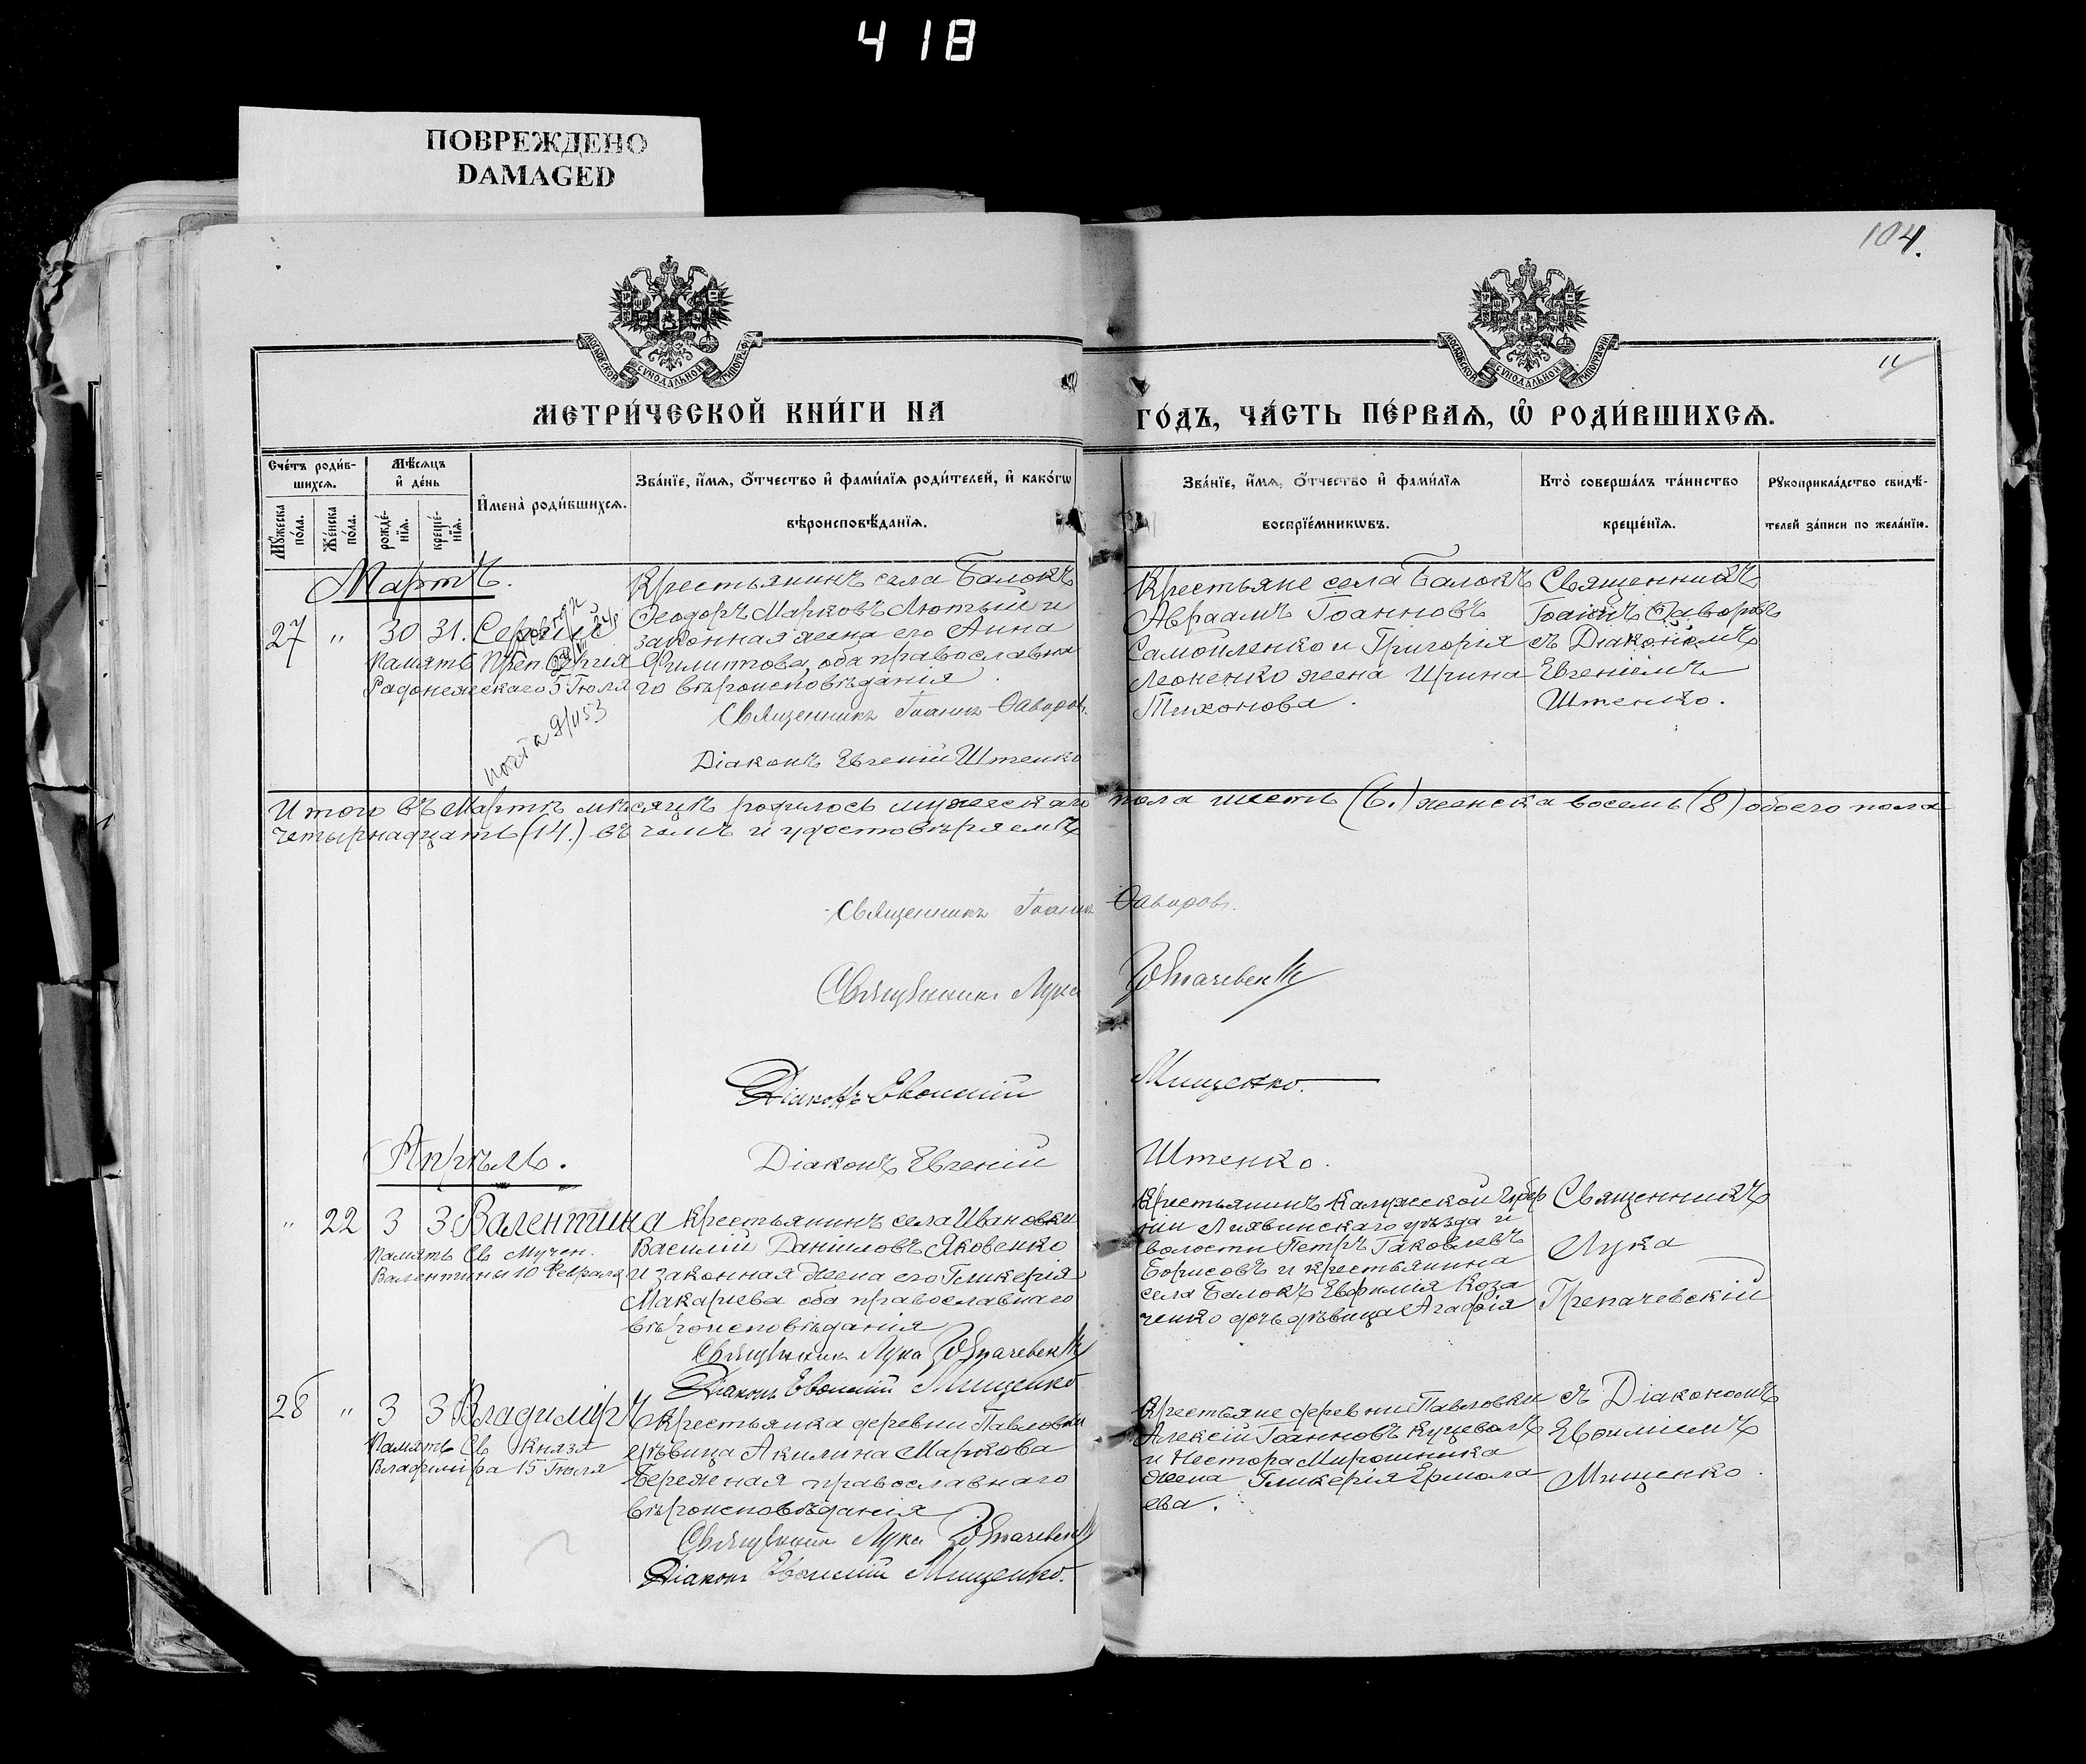 418
ПОВРЕЖДЕНО
DAMAGED
104.
11
МОСКОВСКОЙ СѴНОДАЛЬНОЙ ТИПОГРАФІИ
МОСКОВСКОЙ СѴНОДАЛЬНОЙ ТИПОГРАФІИ
МЕТРИ́ЧЕСКОЙ КНИ́ГИ НА
ГО́ДЪ, ЧА́СТЬ ПЕ́РВАѦ, Ѡ҆ РОДИ́ВШИХСѦ.
Сче́тъ роди́в-
шихсѧ.
Мꙋ́жеска по́ла.
Же́нска по́ла.
Мѣ́сѧцъ
и҆ де́нь
рожде́-
нїѧ.
креще́-
нїѧ.
И҆мена̀ роди́вшихсѧ.
Зва́нїе, и҆́мѧ, о҆́тчество и҆ фами́лїѧ роди́телей, и҆ како́гѡ
вѣроисповѣ́данїѧ.
Зва́нїе, и҆́мѧ, о҆́тчество и҆ фами́лїѧ
воспрїе́мникѡвъ.
Кто̀ соверша́лъ та́инство
креще́нїѧ.
Рꙋкоприкла́дство свидѣ́-
телей за́писи по жела́нїю.
Мартъ.
27 " 30 31. Сергій
Память Преп. Сергія
Радонежскаго 5 Іюля
Крестьянинъ села Балокъ
Ѳеодоръ Марковъ Лютый и
законная жена его Анна
Филиппова, оба православна
го вѣроисповѣданія.
Священникъ Іоаннъ Ѳаворовъ.
Діаконъ Евгеній Штенко
Крестьяне села Балокъ
Авраамъ Іоанновъ
Самойленко и Григорія
Леоненко жена Ирина
Тихонова.
Священникъ
Іоаннъ Ѳаворовъ
съ Діакономъ
Евгеніемъ
Штенко.
Итого въ Мартѣ мѣсяцѣ родилось мужескаго пола шесть (6.) женска восемь (8) обоего пола
четырнадцать (14.) въ чемъ и удостовѣряемъ
Священникъ Іоаннъ Ѳаворовъ.
Священникъ Лука Грепачевскій
Діаконъ Евѳимій Мищенко.
Апрѣль.
Діаконъ Евгеній Штенко.
" 22 3 3 Валентина
Память Св. Мучен.
Валентины 10 Февраля
Крестьянинъ села Ивановки
Василій Даніиловъ Яковенко
и законная жена его Гликерія
Макариева оба православнаго
вѣроисповѣданія
Священникъ Лука Грепачевскій
Діаконъ Евѳимій Мищенко.
Крестьянинъ Калужской губер
ніи Лихвинскаго уѣзда и
волости Петръ Іаковлевъ
Борисовъ и крестьянина
села Балокъ Евфимія Коза
ченко дочь дѣвица Агафія
Священникъ
Лука
Грепачевскій
28 " 3 3 Владиміръ
Память Св Князя
Владиміра 15 Іюля
Крестьянка деревни Павловки
дѣвица Акилина Маркова
Бережная православнаго
вѣроисповѣданія
Священникъ Лука Грепачевскій
Діаконъ Евѳимій Мищенко.
Крестьяне деревни Павловки
Алексій Іоанновъ Куцеволъ
и Нестора Мирошника
жена Гликерія Ермола
ева.
съ Діакономъ
Евѳиміемъ
Мищенко.